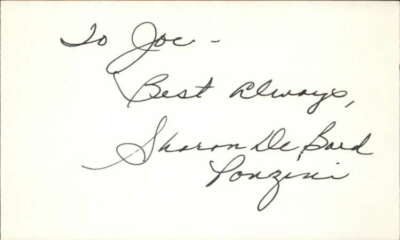 To Joe -
Best always,
Sharon De Bord
Ponzini